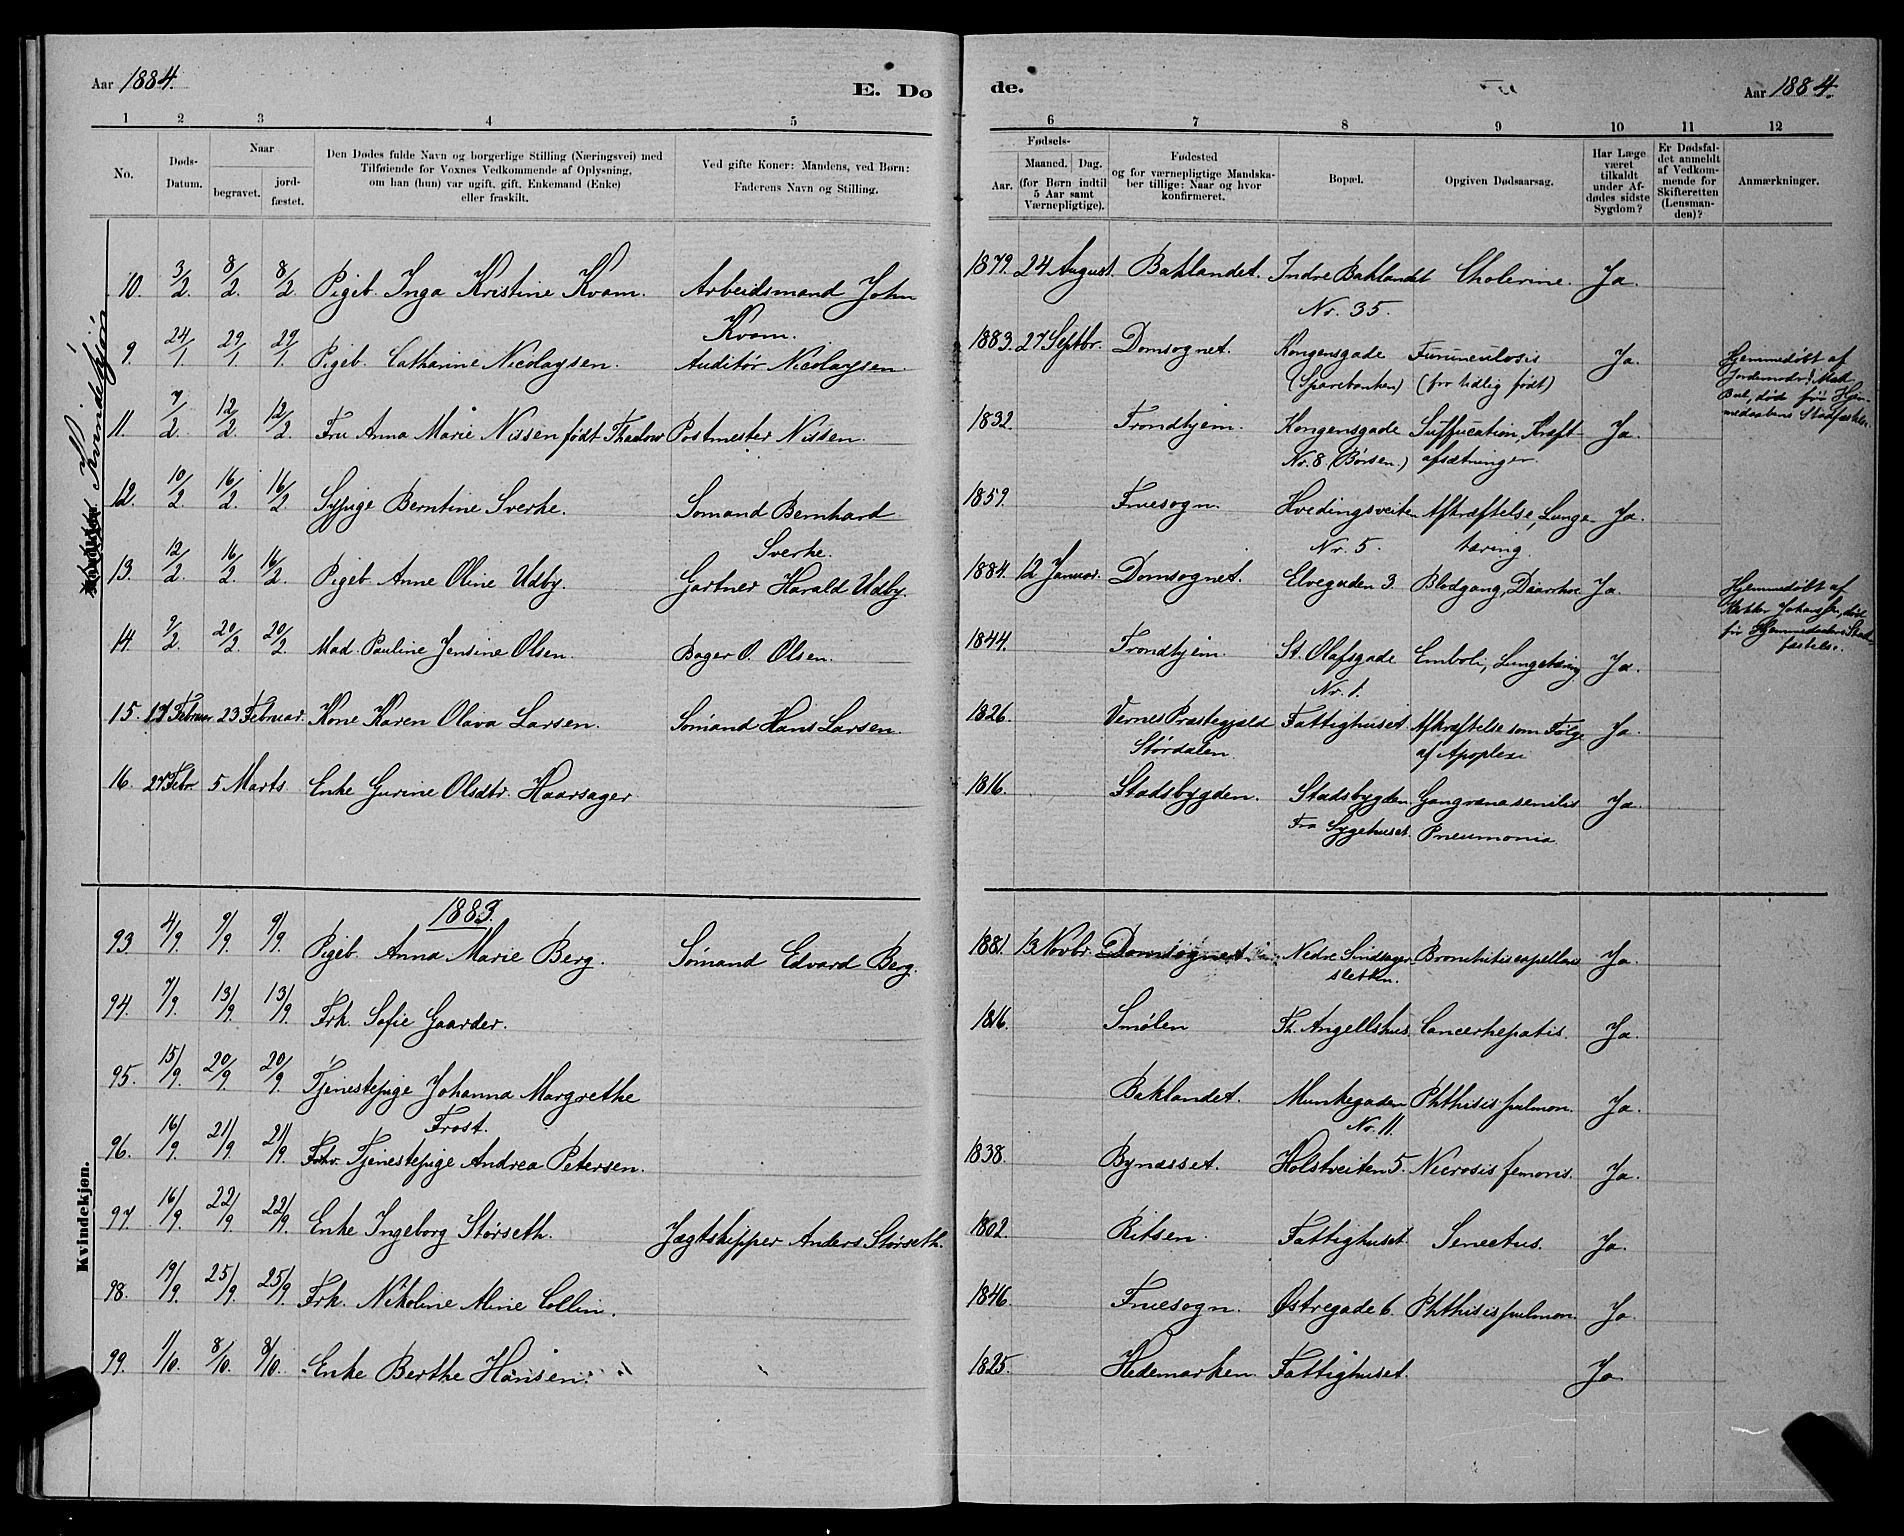 Aar 1884.
E. Dø
1 2 3 4 5
No.
Døds-
Datum.
Naar
begravet.
jord-
fæstet.
Den Dødes fulde Navn og borgerlige Stilling (Næringsvei) med
Tilføiende for Voxnes Vedkommende af Oplysning,
om han (hun) var ugift, gift, Enkemand (Enke)
eller fraskilt.
Ved gifte Koner: Mandens, ved Børn:
Faderens Navn og Stilling.
Kvindekjøn
10. 3/2. 8/2. 8/2. Pigeb. Inga Kristine Kvam. Arbeidsmand John
Kvam.
9. 24/1. 29/1. 29/1. Pigeb. Catharine Nicolaysen. Auditør Nicolaysen.
11. 7/2. 12/2. 12/2. Fru Anna Marie Nissen født Thaulow Postmester Nissen.
12. 10/2. 16/2. 16/2. Sypige Berntine Sverke. Sømand Bernhard
Sverke.
13. 12/2. 16/2. 16/2. Pigeb. Anne Oline Udby. Gartner Harald Udby.
14. 9/2. 20/2. 20/2. Mad. Pauline Jensine Olsen. Bager O. Olsen.
15. 17 Februar 23 Februar. Kone Karen Olava Larsen. Sømand Hans Larsen.
16. 27 Febr. 5 Marts Enke Gurine Olsdtr. Haarsager
1883.
Kvindekjøn.
93. 4/9. 9/9. 9/9. Pigeb. Anna Marie Berg. Sømand Edvard Berg.
94. 7/9. 13/9. 13/9. Frk. Sofie Gaarder.
95. 15/9. 20/9. 20/9. Tjenestepige Johanna Margrethe
Frost.
96. 16/9. 21/9. 21/9. Tjenestepige Andrea Petersen.
97. 16/9. 22/9. 22/9. Enke Ingeborg Størseth. Jægtskipper Anders Størseth.
98. 19/9. 25/9. 25/9. Frk. Nikoline Aline Collin.
99. 1/10. 8/10. 8/10. Enke Berthe Hansen.
de.
Aar 1884.
6 7 8 9 10 11 12
Fødsels-
Aar.
Maaned. Dag.
(for Børn indtil
5 Aar samt
Værnepligtige).
Fødested
og for værnepligtige Mandska-
ber tillige: Naar og hvor
konfirmeret.
Bopæl.
Opgiven Dødsaarsag.
Har Læge
været
tilkaldt
under Af-
dødes sidste
Sygdom?
Er Dødsfal-
det anmeldt
af Vedkom-
mende for
Skifteretten
(Lensman-
den)?
Anmærkninger.
1879. 24 August. Baklandet. Indre Baklandet Cholerine. Ja.
Nr. 35.
1883. 27 Septbr. Domsognet. Kongensgade Furunculosis Ja.
(Sparebanken) (for tidlig født)
Hjemmedøbt af
1832. Trondhjem. Kongensgade Suffucation, Kræft Ja.
Nr. 8 (Børsen.) afsætninger.
1859. Fruesogn. Hvedingsveiten Afkræftelse, Lunge Ja.
Nr. 5. tæring.
1884. 12 Januar. Domsognet. Elvegaden 3. Blodgang, Diarrhoe Ja.
Hjemmedøbt af
1844. Trondhjem. St. Olafsgade Emboli, Lungetæring Ja.
Nr. 1.
1826. Vernes Præstegjæld Fattighuset Afkræftelse som Følge Ja.
Størdalen af Apoplexi
1816. Stadsbygden. Stadsbygden Gangræna senilis Ja.
Fra Sygehuset. Pneumonia
1881. 13 Novbr. Domsognet Nedre Sindsager- Bronchitis capellaris Ja.
sletten.
1816. Smølen Th. Angellshus. Cancer hepatis. Ja.
Baklandet. Munkegaden Phthisis pulmon. Ja.
No. 11.
1838. Bynæsset. Holstveiten 5. Necrosis femoris. Ja.
1802. Ritsen. Fattighuset Senectus. Ja.
1846. Fruesogn. Østregade 6. Phthisis pulmon. Ja.
1825. Hedemarken. Fattighuset. Ja